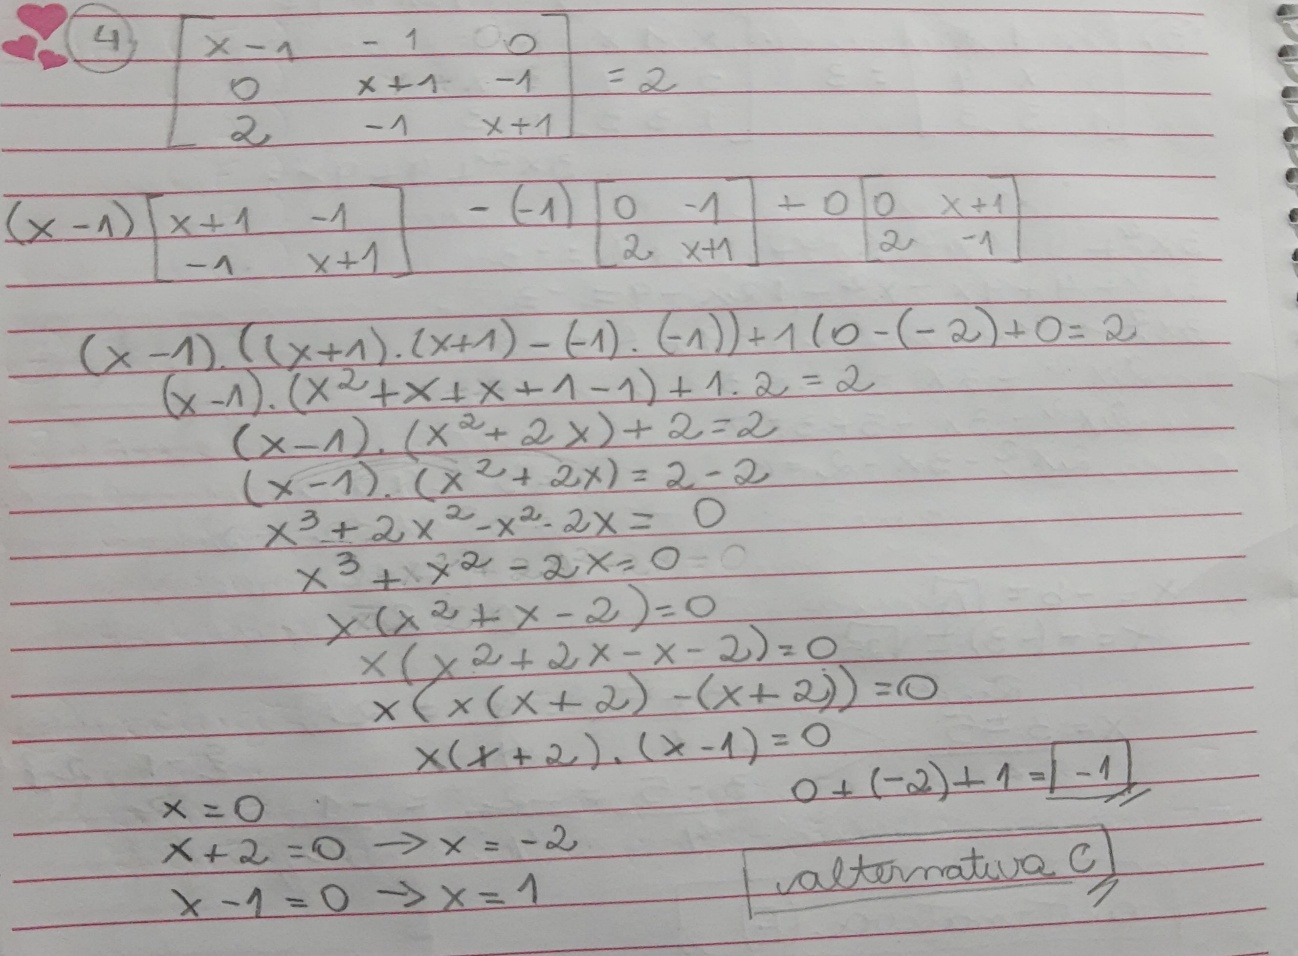 4 x-1 -1 0
0 x+1 -1 = 2
2 -1 x+1
(x-1) x+1 -1 - (-1) 0 -1 + 0 0 x+1
-1 x+1 2 x+1 2 -1
(x-1).((x+1).(x+1)-(-1).(-1))+1(0-(-2)+0=2
(x-1).(x²+x+x+1-1)+1.2=2
(x-1).(x²+2x)+2=2
(x-1).(x²+2x)=2-2
x³+2x²-x²-2x= 0
x³+x²-2x=0
x(x²+x-2)=0
x(x²+2x-x-2)=0
x(x(x+2)-(x+2))=0
x(x+2).(x-1)=0
0+(-2)+1=-1
x=0
x+2=0→x=-2
x-1=0→x=1
alternativa C